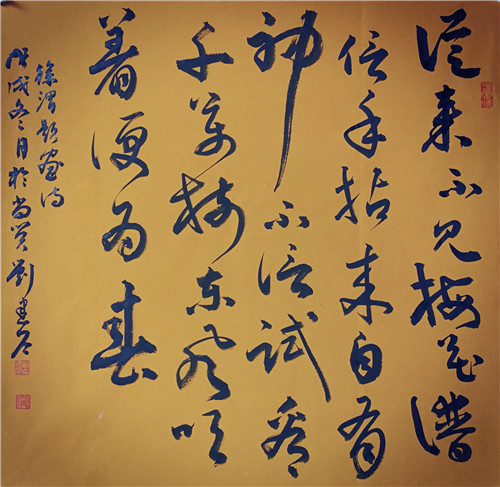 從來不見梅花譜
信手拈來自有
神不信試看
千萬樹東風吹
著便為春
徐渭題畫詩
戊戌冬月於尚賢劉建